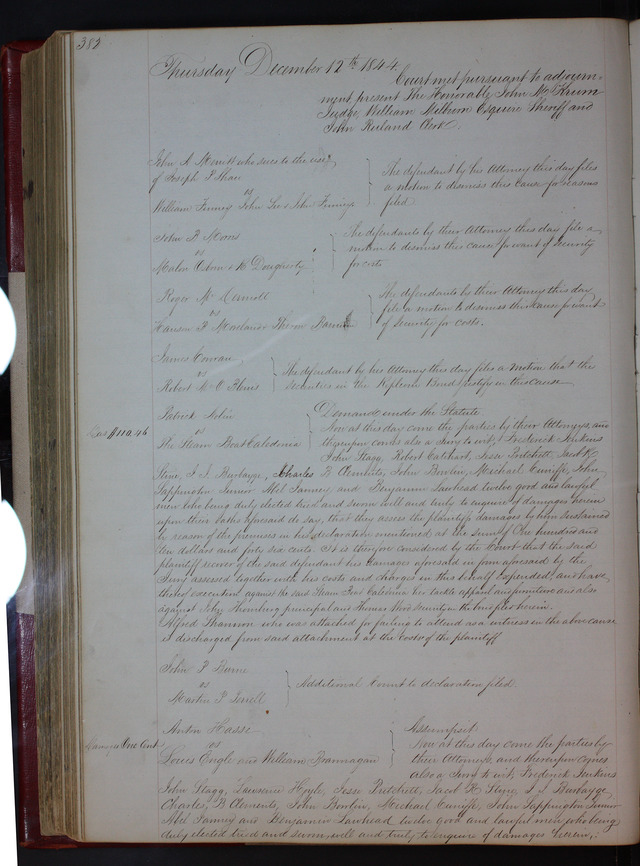 382
Thursday December 12th 1844
Court met pursuant to adjourn-
ment present The Honorable John M. Krum
Judge, William Milburn Esquire Sheriff and
John Ruland Clerk.
John A. who sues to the use
of Joseph P Shaw
vs
William Finney John Lee & John Finney
The defendant by his Attorney this day files
a motion to dismiss this cause for reasons
filed
John P.
vs
& Dougherty
The defendants by their Attorney this day file a
motion to dismiss this cause for want of security
for costs
Roger Mc
vs
Hanson P
The defendants by their Attorney this day
file a motion to dismiss this cause for want
of security for costs.
James Conran
vs
Robert
The defendant by his Attorney this day files a motion that the
securities in the Replevin Bond justify in this cause
Patrick
vs
The Steam Boat Caledonia
Dam $110.46
Demand under the Statute
Now at this day come the parties by their Attorneys, and
thereupon comes also a Jury to wit, Frederick Jenkins
John Stagg, Robert Cathcart, Jesse Pritchett, Jacob K
Stine, J. J. Burbayge, Charles B Clements, John Bowlin, Michael Cunliff, John
Sappington Junior Abel Janney and Benjamin Lawhead twelve good and lawful
men who being duly elected tried and sworn well and truly to enquire of damages herein
upon their oaths aforesaid do say, that they assess the plaintiffs damages by him sustained
by reason of the premises in his declaration mentioned at the sum of One hundred and
ten dollars and forty six cents. It is therefore considered by the Court that the said
plaintiff recover of the said defendant his damages aforesaid in form aforesaid by the
Jury assessed together with his costs and charges in this behalf expended, and have
thereof execution against the said Steam Boat Caledonia her tackle apparel and furniture and also
against John principal and Thomas security in the bond filed herein.
Alfred Shannon who was attached for failing to attend as a witness in the above cause
is discharged from said attachment at the costs of the plaintiff
John P
vs
Martin P
Additional Count to declaration filed
Anton Hasse
vs
Louis Engle and William Brannagan
Damages One Cent
Assumpsit
Now at this day come the parties by
their Attorneys, and thereupon comes
also a Jury to wit, Frederick Jenkins
John Stagg, Lawrence Jesse Pritchett, Jacob K Stine, J. J. Burbayge
Charles B Clements, John Bowlin, Michael Cunliff, John Sappington Junior
Abel Janney and Benjamin Lawhead twelve good and lawful men who being
duly elected tried and sworn, well and truly to enquire of damages herein,